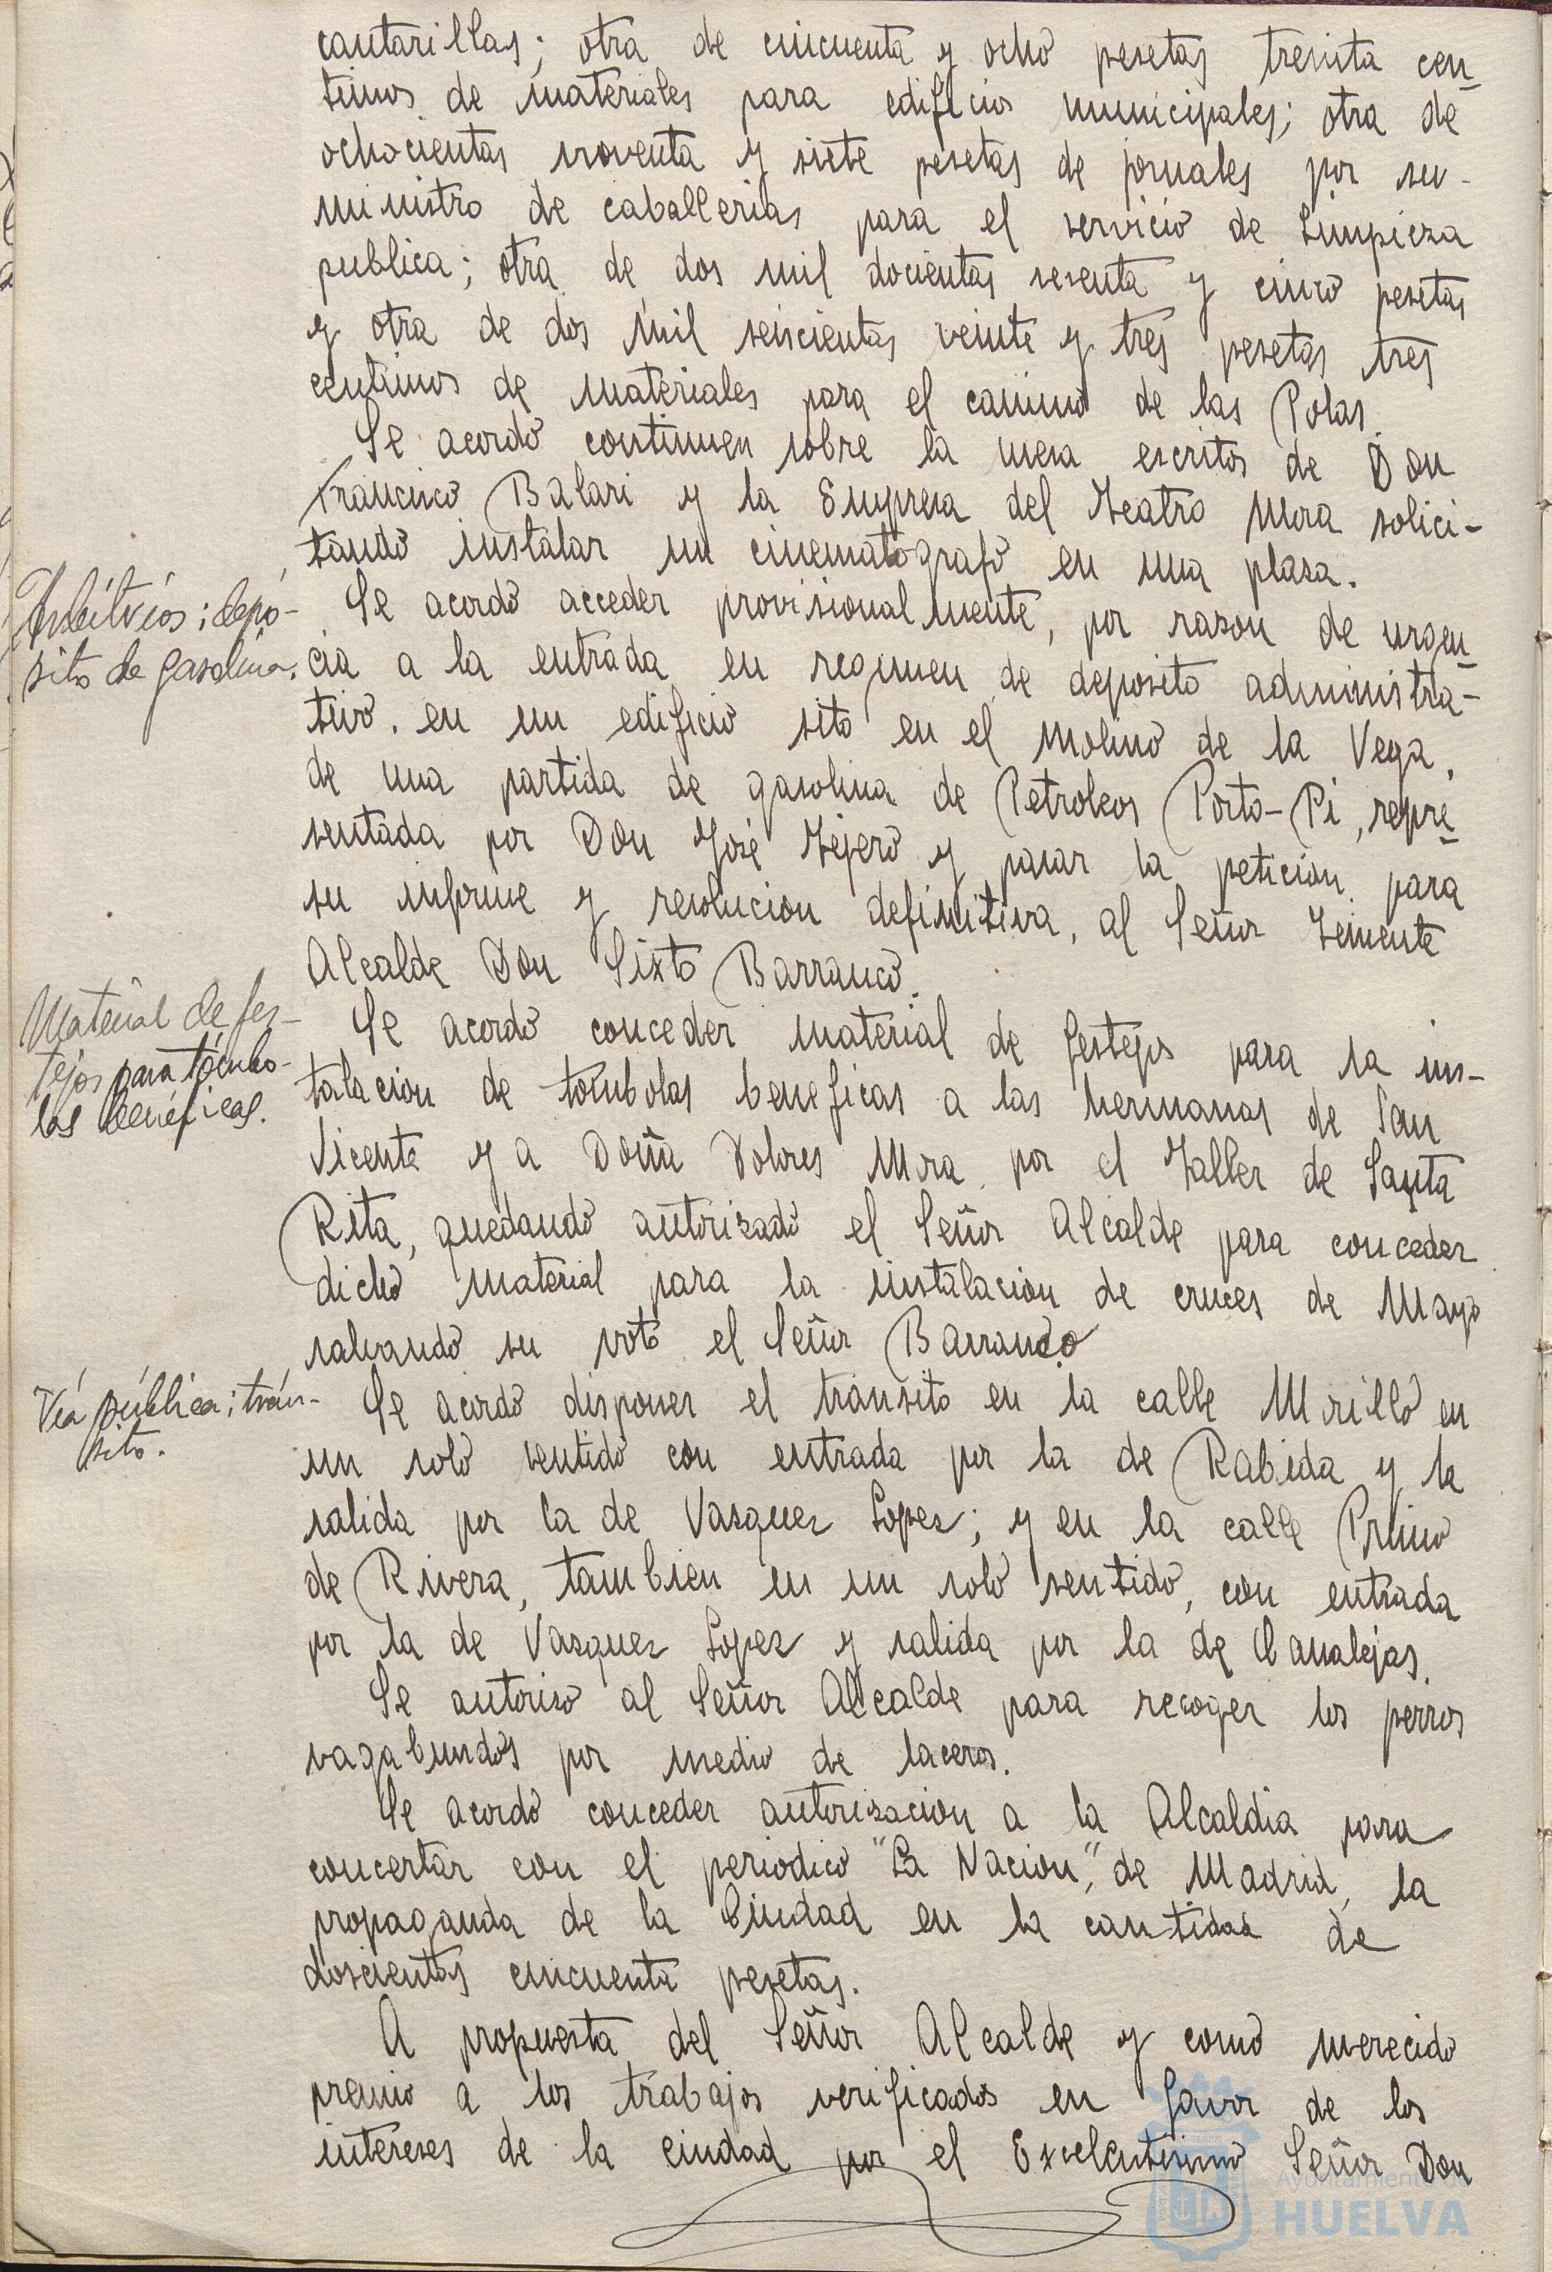 cantarillas; otra de cincuenta y ocho pesetas treinta cen-
timos de materiales para edificios municipales; otra de
ochocientas noventa y siete pesetas de jornales por su-
ministro de caballerias para el servicio de Limpieza
publica; otra de dos mil docientas sesenta y cinco pesetas
y otra de dos mil seiscientas veinte y tres pesetas tres
centimos de materiales para el camino de las Polas.
Se acordó continuen sobre la mesa escritos de Don
Francisco Balari y la Empresa del Teatro Mora solici-
tando instalar un cinematografo en una plaza.
Arbitrios; depó-
sito de gasolina.
Se acordó acceder provisionalmente, por razon de urgen-
cia a la entrada en regimen de deposito administra-
tivo. en un edificio sito en el Molino de la Vega,
de una partida de gasolina de Petroleos Porto-Pi, repre-
sentada por Don José Tejero y pasar la peticion para
su informe y resolucion definitiva, al Señor Teniente
Alcalde Don Sixto Barranco.
Material de fes-
tejos para tómbo-
las benéficas.
Se acordó conceder material de festejos para la ins-
talacion de tombolas beneficas a las hermanas de San
Vicente y a Doña Dolores Mora por el Taller de Santa
Rita, quedando autorizado el Señor Alcalde para conceder
dicho material para la instalacion de cruces de Mayo
salvando su voto el Señor Barranco
Vía pública; trán-
sito.
Se acordó disponer el transito en la calle Murillo en
un solo sentido con entrada por la de Rabida y la
salida por la de Vasquez Lopez; y en la calle Primo
de Rivera, tambien en un solo sentido, con entrada
por la de Vazquez Lopez y salida por la de Canalejas.
Se autorizó al Señor Alcalde para recoger los perros
vagabundos por medio de laceros.
Se acordó conceder autorizacion a la Alcaldia para
concertar con el periodico "La Nacion", de Madrid, la
propaganda de la Ciudad en la cantidad de
doscientas cincuenta pesetas.
A propuesta del Señor Alcalde y como merecido
premio a los trabajos verificados en favor de los
intereses de la ciudad por el Excelentisimo Señor Don
Ayuntamiento de
HUELVA